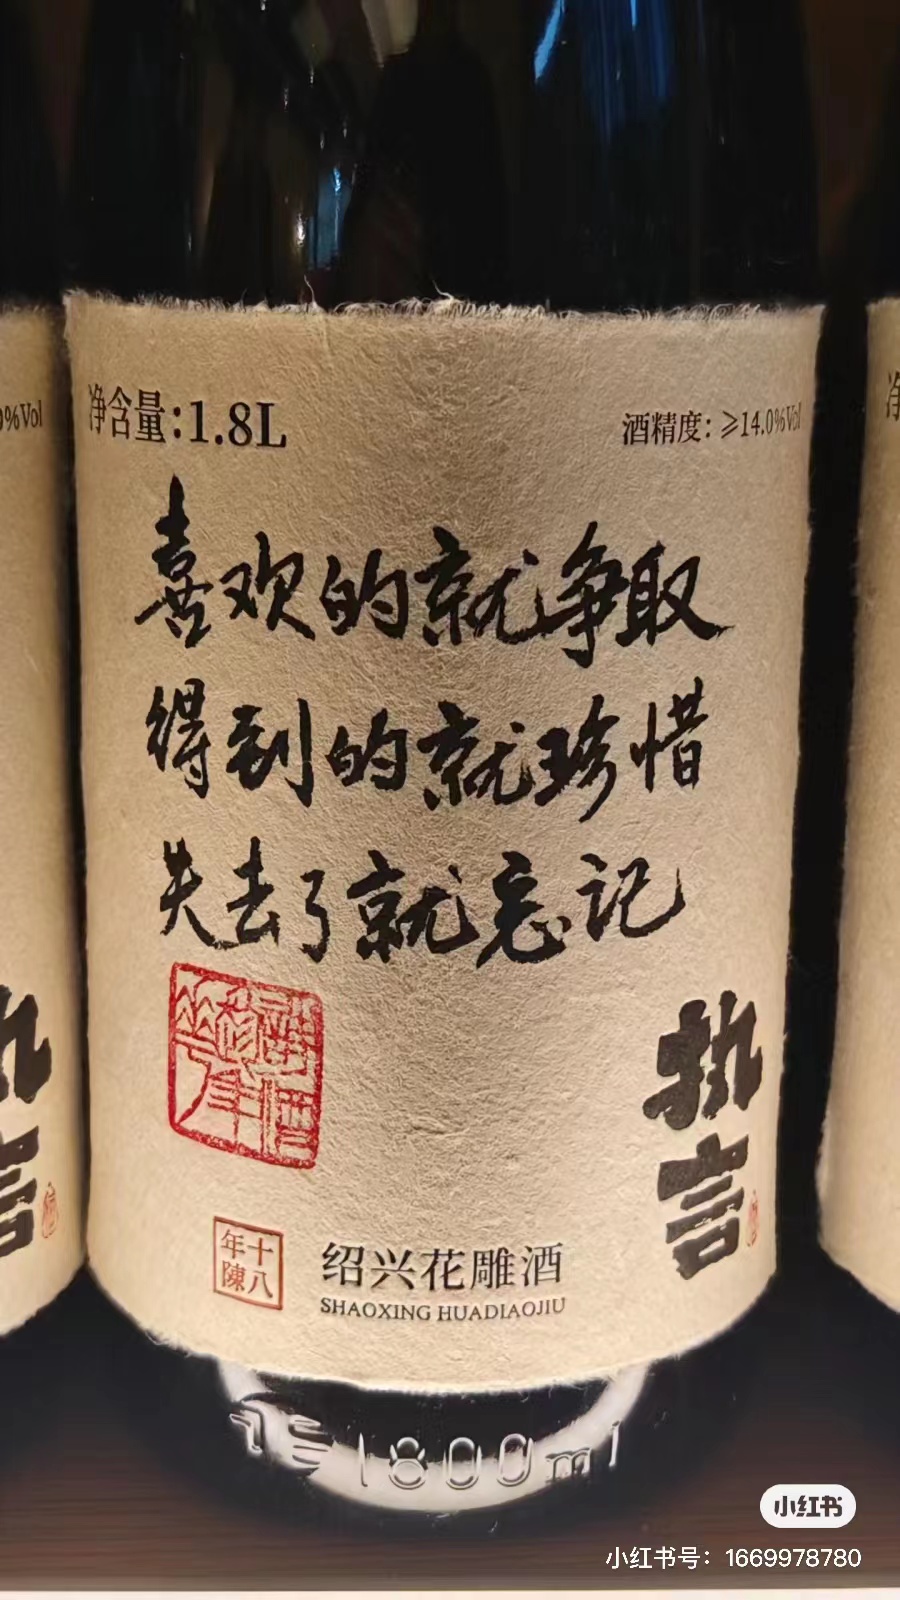 净含量:1.8L
酒精度: ≥14.0%Vol
喜欢的就争取
得到的就珍惜
失去了就忘记
执言
十八年陳
绍兴花雕酒
SHAOXING HUADIAOJIU
1800ml
9%Vol
净
执言
小红书
小红书号: 1669978780